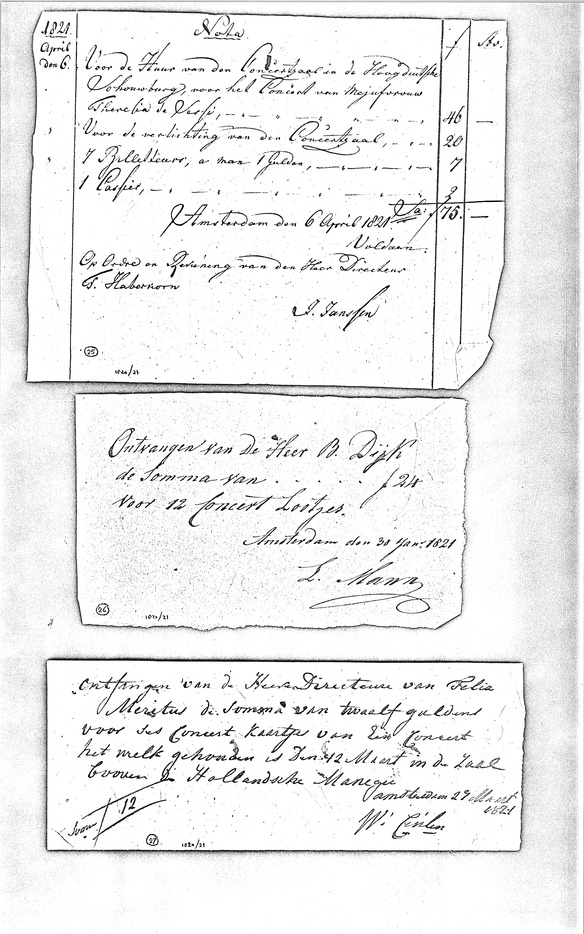 1821. Nota f Sts.
April
den 6. Voor de Huur van den Concertzaal in de Hoogduitsche
Schouwburg, voor het Concert van Mejufvrouw
Theresia de Sessi, 46 —
" Voor de verlichting van den Concertzaal, 20
" 7 Billetteurs, a man 1 Gulden, 7
1 Cassier, 2
Sa: f 75. —
Amsterdam den 6 April 1821
Voldaan.
Op Ordre en Rekening van den Heer Directeur
F. Haberkorn
J. Janssen
25 1820/21
Ontvangen van De Heer B. Dijk
de Somma van . . . . . . f 24
voor 12 Concert Lootjes.
Amsterdam den 30 Jan: 1821
L. Mann
26 1820/21
ontfangen van de Heere Directeure van Felix
Meritus de Somma van twaalf guldens
voor Ses Concert kaartjes van Een Concert
het welk gehouden is Den 12 Maart in de Zaal
booven de Hollandsche Manegie
amsterdam 27 Maart
1821
Somma f 12
W:
27 1820/21